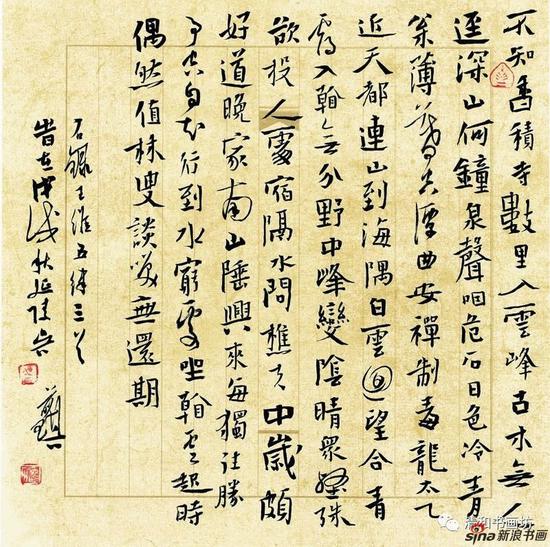 不知香積寺數里入雲峰古木無人
逕深山何鐘泉聲咽危石日色冷青
松薄暮空潭曲安禪制毒龍太乙
近天都連山到海隅白雲迴望合青
靄入看無分野中峰變陰晴衆壑殊
欲投人處宿隔水問樵夫中歲頗
好道晚家南山陲興來每獨往勝
事空自知行到水窮處坐看雲起時
偶然值林叟談笑無還期
右錄王維五律三首
時在戊戌秋延陵
清和书画坊
sina新浪书画